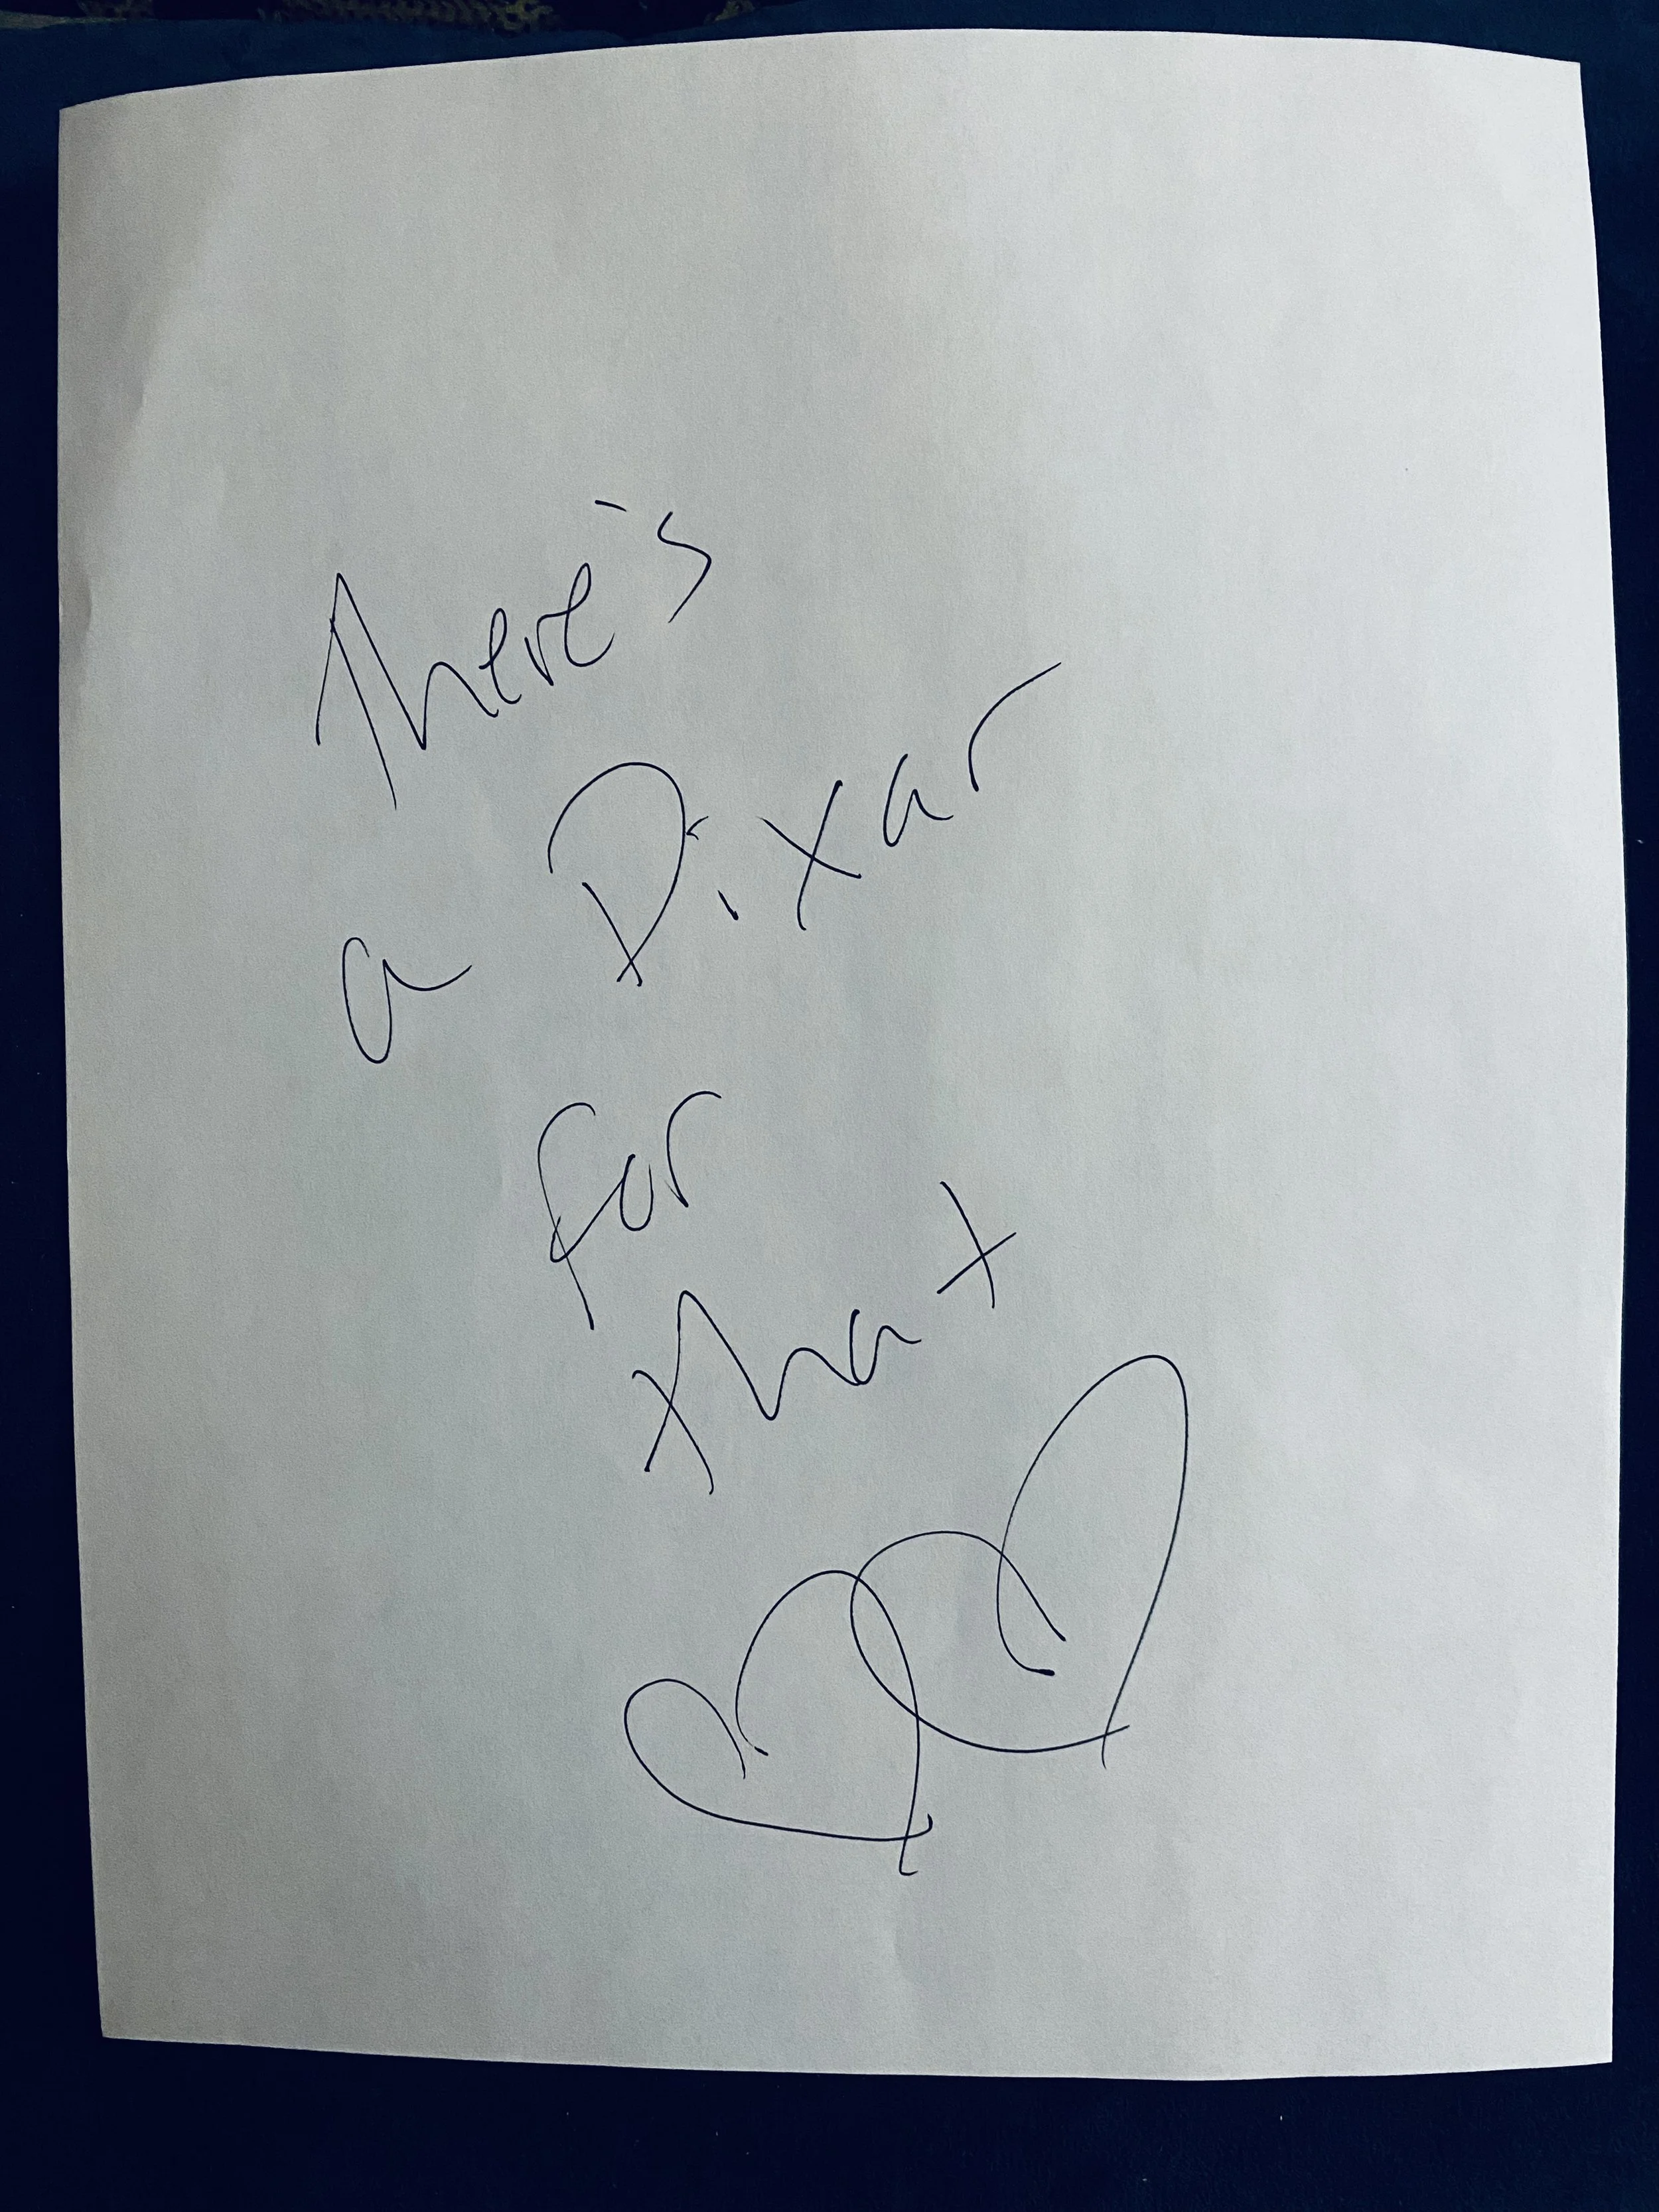 There's
a Dixar
for
that